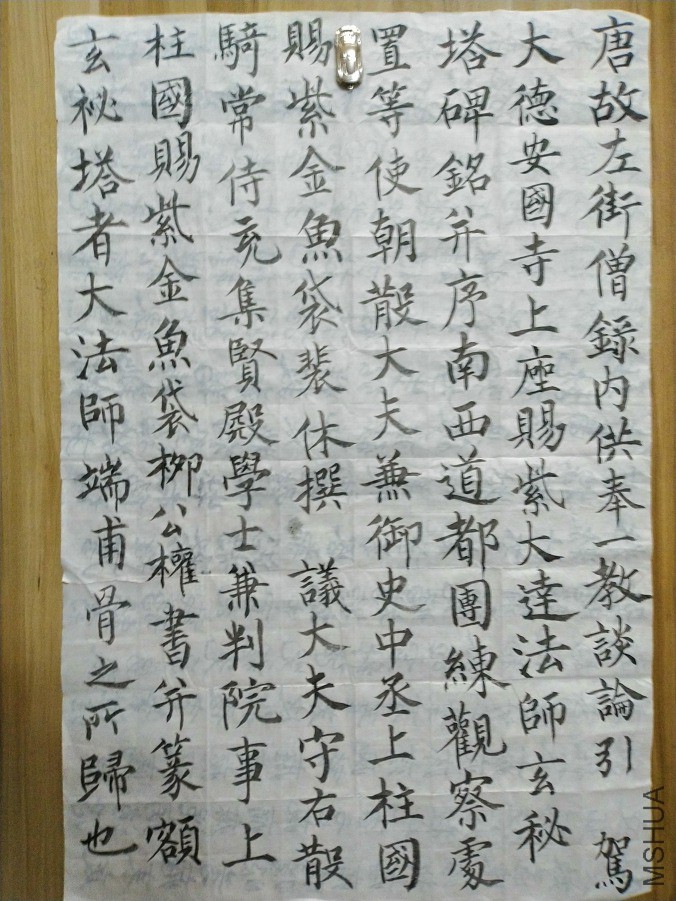 唐故左街僧錄內供奉一教談論引 駕
大德安國寺上座賜紫大達法師玄秘
塔碑銘并序南西道都團練觀察處
置等使朝散大夫兼御史中丞上柱國
賜紫金魚袋裴休撰 議大夫守右散
騎常侍充集賢殿學士兼判院事上
柱國賜紫金魚袋柳公權書并篆額
玄祕塔者大法師端甫骨之所歸也
MSHUA